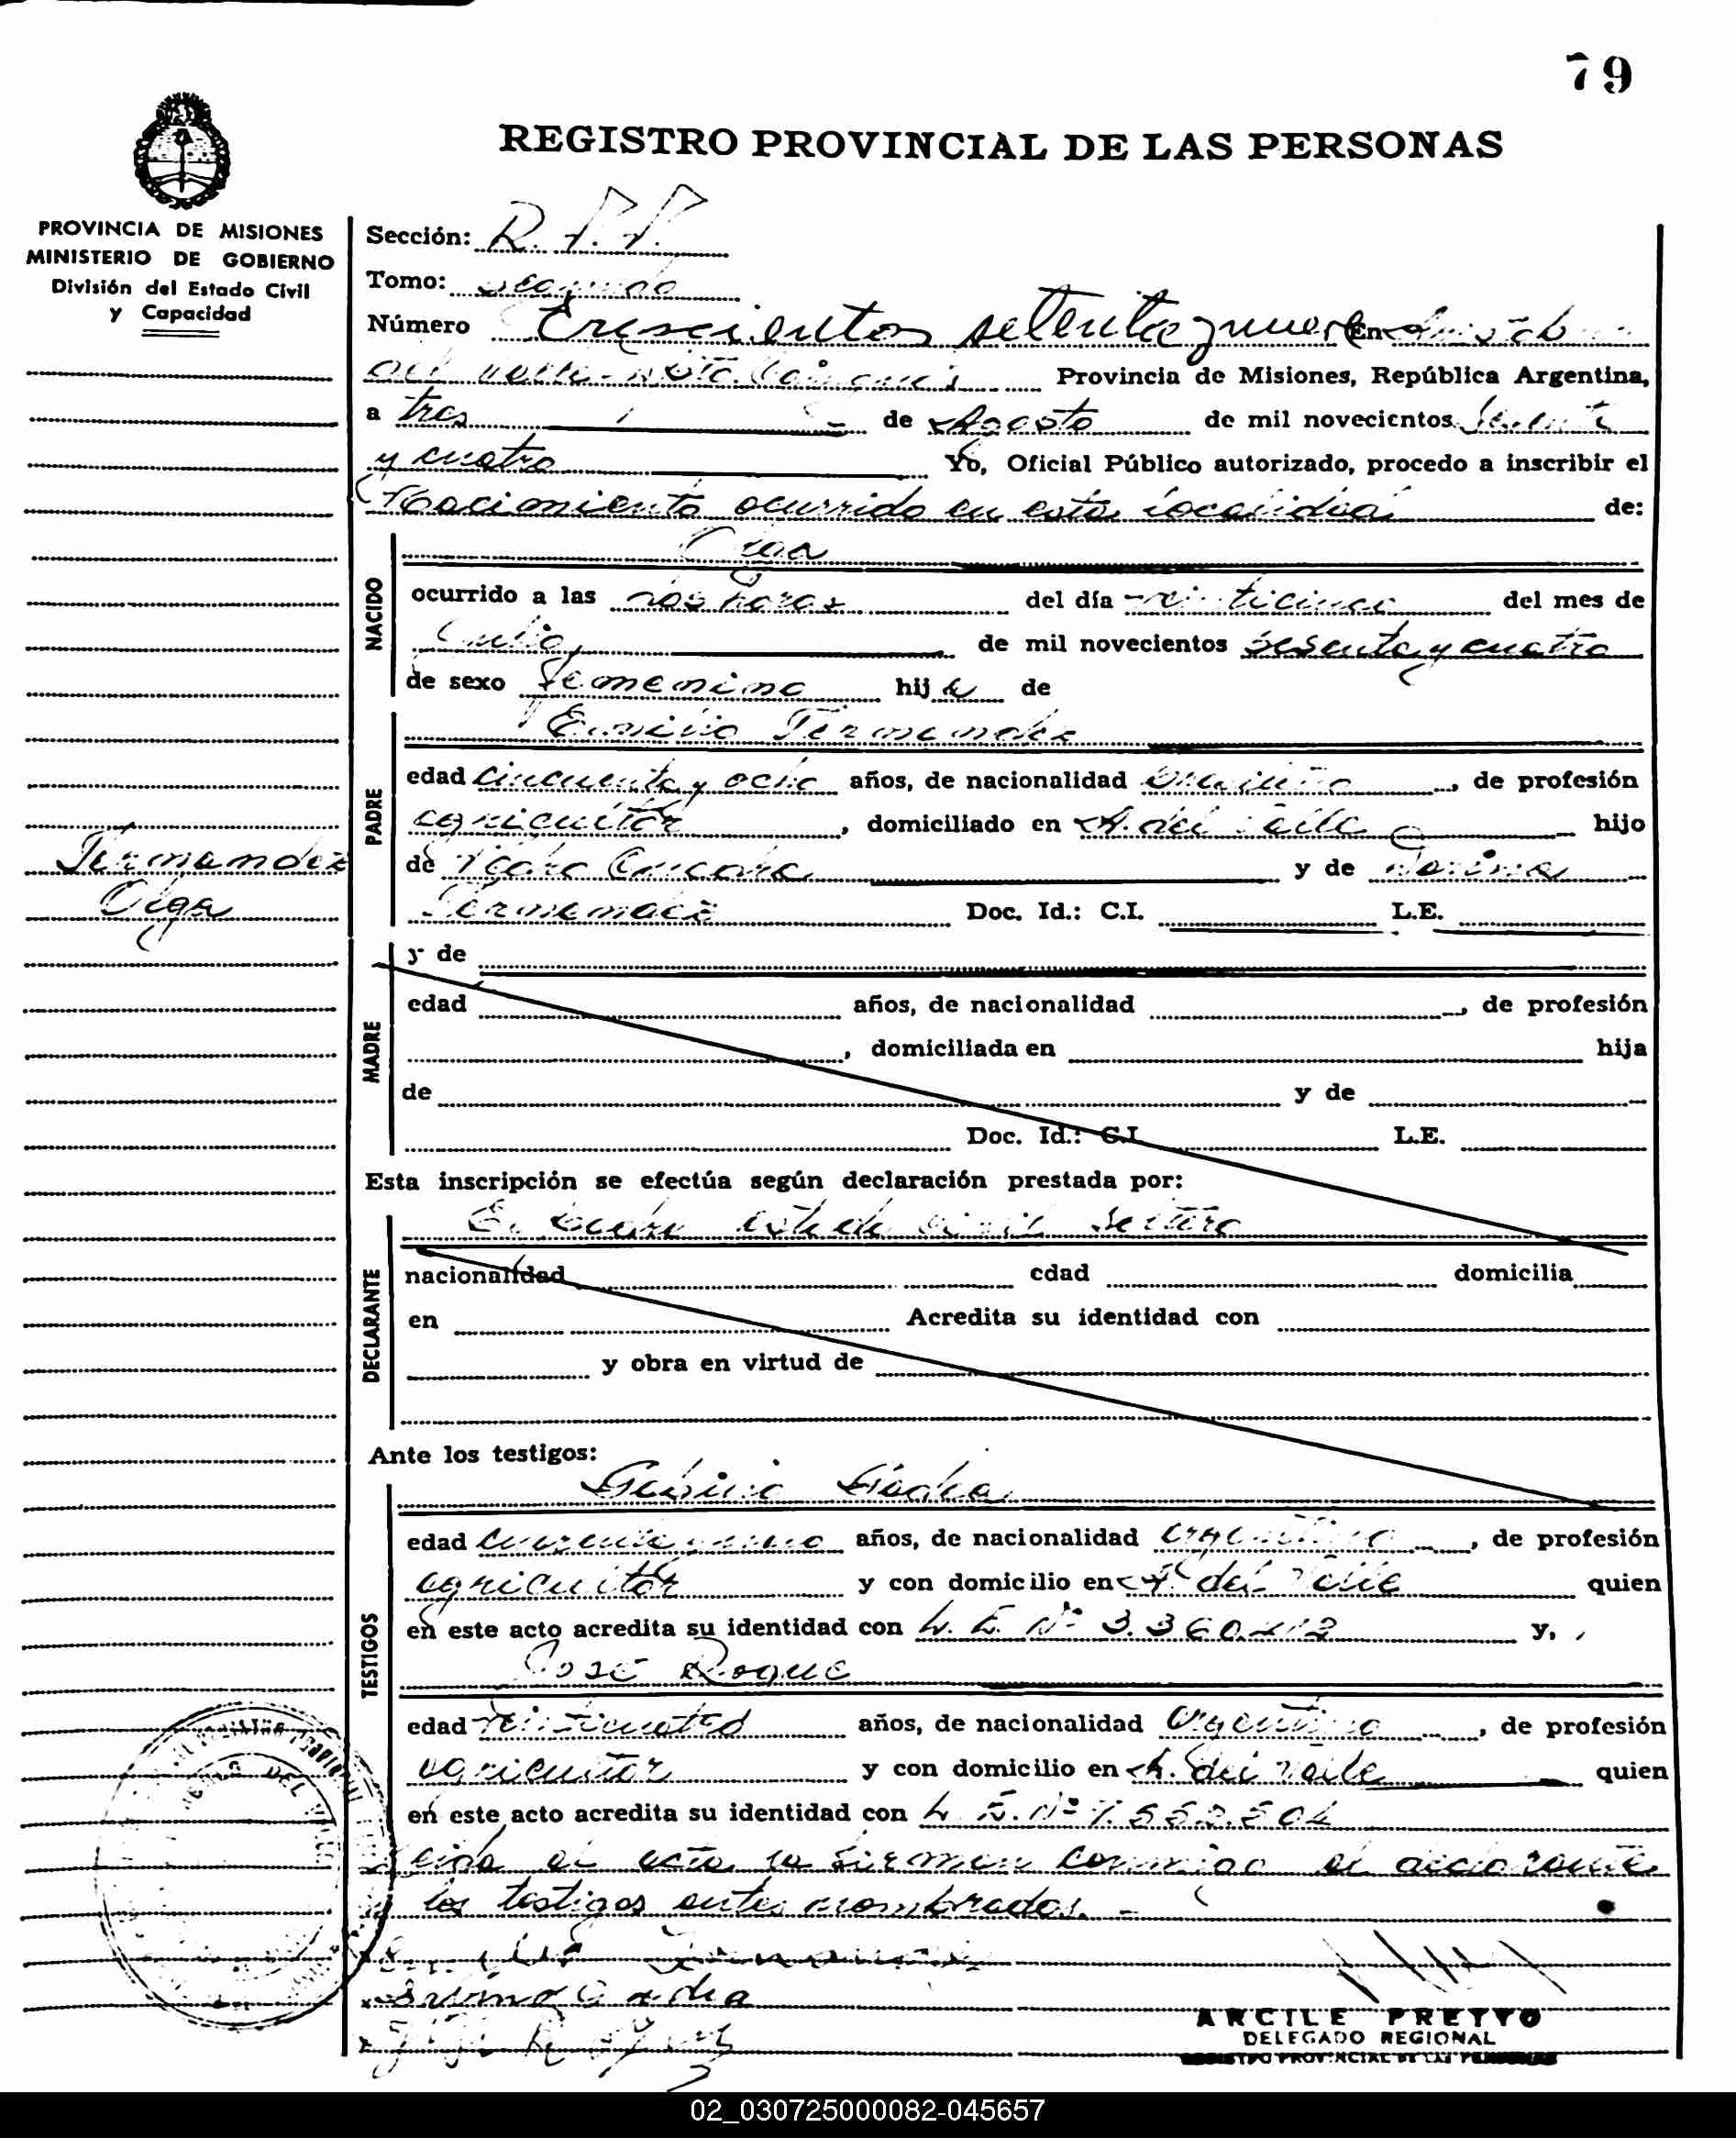 79
REGISTRO PROVINCIAL DE LAS PERSONAS
PROVINCIA DE MISIONES
MINISTERIO DE GOBIERNO
División del Estado Civil
y Capacidad
Sección: R.
Tomo: segundo
Número Trescientos setenta y nueve En
del valle Provincia de Misiones, República Argentina,
a tres de Agosto de mil novecientos
y cuatro Yo, Oficial Público autorizado, procedo a inscribir el
Nacimiento ocurrido en esta localidad de:
Olga
NACIDO
ocurrido a las dos horas del día veinticinco del mes de
Julio de mil novecientos sesenta y cuatro
de sexo Femenino hija de
PADRE
Emilio Fernandez
edad cincuenta y ocho años, de nacionalidad , de profesión
agricultor , domiciliado en A. del Valle hijo
de Pedro y de
Fernandez Doc. Id.: C.I. L.E.
Fernandez
Olga
MADRE
y de
edad años, de nacionalidad , de profesión
, domiciliada en hija
de y de
Doc. Id.: C.I. L.E.
Esta inscripción se efectúa según declaración prestada por:
DECLARANTE
El padre estado civil soltero
nacionalidad edad domicilia
en Acredita su identidad con
y obra en virtud de
Ante los testigos:
TESTIGOS
edad años, de nacionalidad argentino , de profesión
agricultor y con domicilio en A. del Valle quien
en este acto acredita su identidad con L. E. Nº y,
José Roque
edad veinticuatro años, de nacionalidad Argentino , de profesión
agricultor y con domicilio en A. del Valle quien
en este acto acredita su identidad con L. E. Nº
Leida el acta la firman conmigo el declarante
y los testigos antes nombrados.
ARCILE PREYTO
DELEGADO REGIONAL
REGISTRO PROVINCIAL DE LAS PERSONAS
02_030725000082-045657